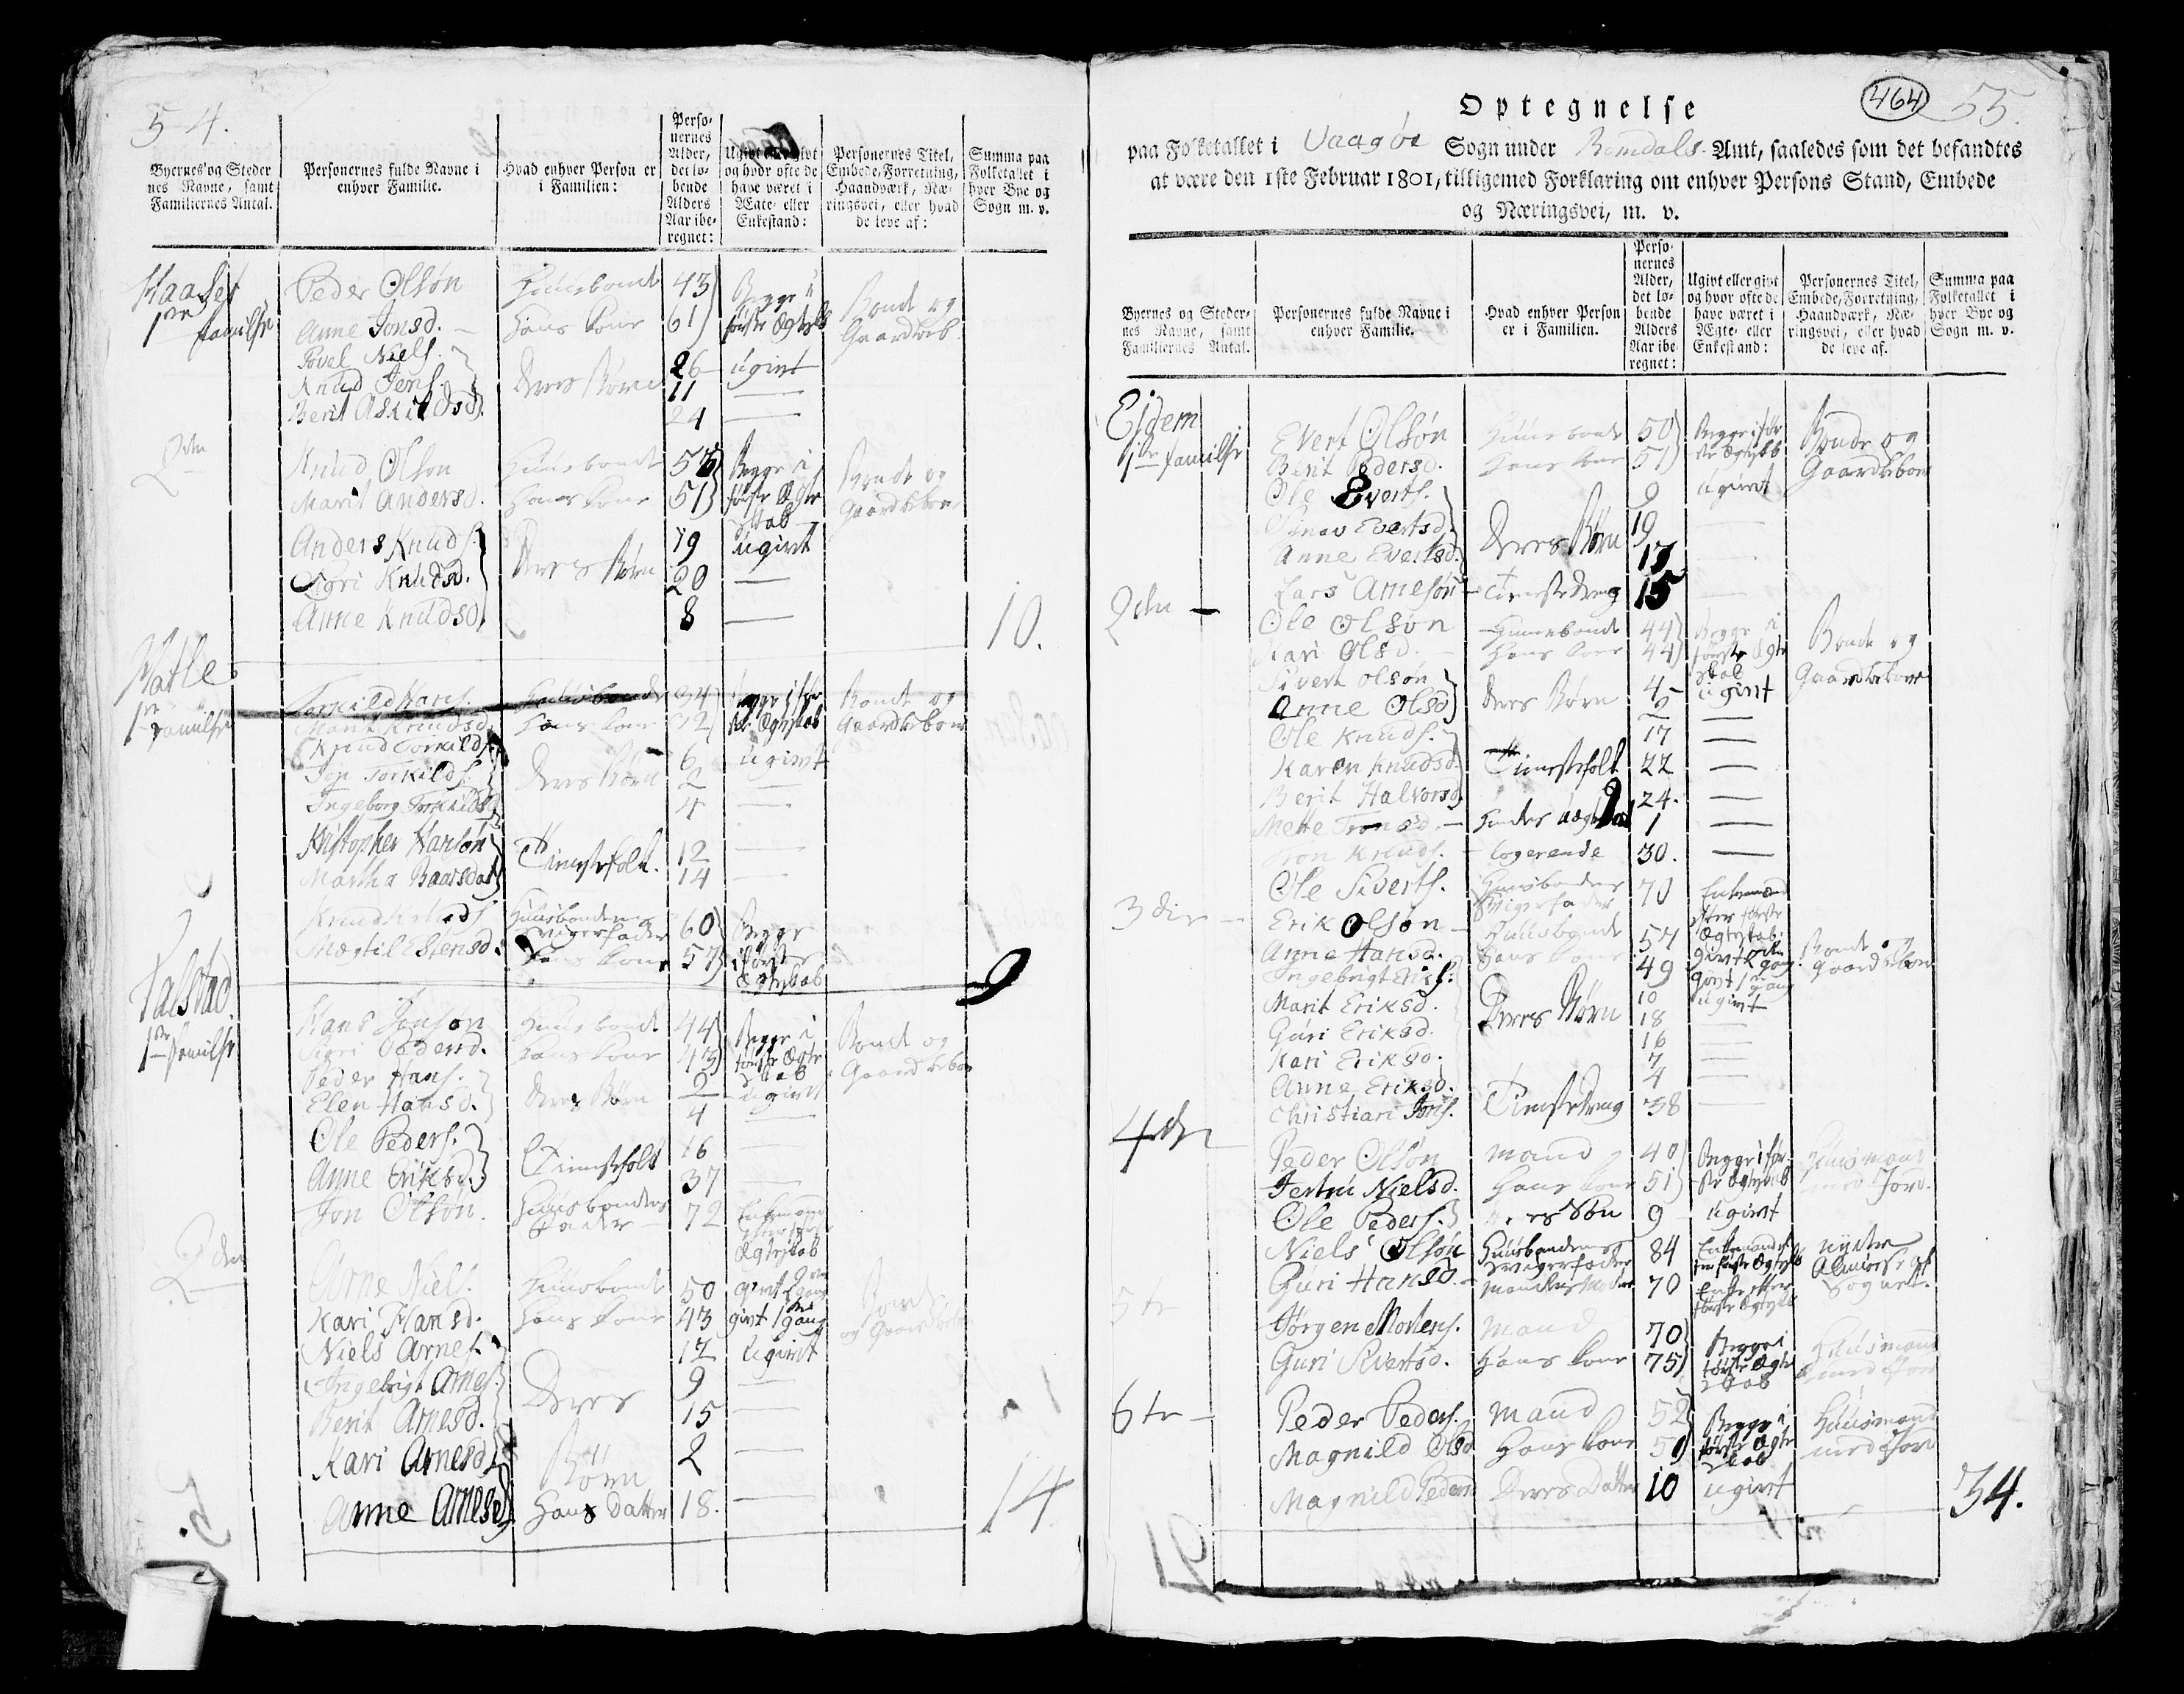 54.
Byernes og Steder
nes Navne, samt
Familiernes Antal.
Personernes fulde Navne i
enhver Familie.
Hvad enhver Person er
i Familien:
Perso-
nernes
Alder,
det lø-
bende
Alders
Aar ibe-
regnet:
Ugivt eller givt
og hvor ofte de
have været i
Ægte- eller
Enkestand:
Personernes Titel,
Embede, Forretning,
Haandværk, Næ-
ringsvei, eller hvad
de leve af:
Summa paa
Folketallet i
hver Bye og
Sogn m. v.
Peder Olsøn Huusbonde 43 Begge i Bonde og
1ste Familie Anne Jonsd. Hans Kone 61 første Ægtesk Gaardbeb.
Povel Niels. 26 ugivt
Knud Jens. Deres Børn 11 —
Berit Askildsd. 24 —
2den Knud Olson Huusbonde 55 Begge i Bonde og
Marit Andersd. Hans Kone 51 første Ægte Gaardbeboer
skab
Anders Knuds. 19 ugivt
Sigri Knudsd. Deres Børn 20 —
Anne Knudsd. 8 — 10.
Torkild Hans. Huusbonde 34 Begge i før Bonde og
1ste Familie Marit Knudsd. Hans Kone 32 ste Ægteskab Gaardbeboer
Knud Torkilds. 6 ugivt
Jon Torkilds. Deres Børn 2 —
Ingeborg Torkildsd. 4 —
Kristopher Hansøn Tienestefolk. 12 —
Martha Baarsdat 14 —
Knud Knuds Huusbondens
Svigerfader 60 Begge
Mægtil Estensd. Hans Kone 57 i første
Ægteskab 9
Talstad
Hans Jonson Huusbonde 44 Begge i Bonde og
1ste Familie Sigri Pedersd. Hans Kone 43 første Ægte Gaardbeboer
skab
Peder Hans. Deres Børn 2 ugivt
Elen Hansd. 4 —
Ole Peders. Tienestefolk 16 —
Anne Eriksd. 37 —
Jon Olsøn. Huusbondens
Fader 72 Enkemand
efter første
Ægteskab
2den Arne Niels. Huusbonde 50 givt 2 gang Bonde
Kari Hansd. Hans Kone 43 givt 1ste gang og Gaardbeboer
Niels Arnes. 12 ugivt
Ingebrigt Arnes. Deres 9 —
Berit Arnesd. 15 —
Kari Arnesd. Børn 2 —
Anne Arnesd. Hans Datter 18. — 14
464 55.
Optegnelse
paa Folketallet i Vaagøe Sogn under Romdals Amt, saaledes som det befandtes
at være den 1ste Februar 1801, tilligemed Forklaring om enhver Persons Stand, Embede
og Næringsvei, m. v.
Byernes og Steder-
nes Navne, samt
Familiernes Antal.
Personernes fulde Navne i
enhver Familie.
Hvad enhver Person
er i Familien.
Perso-
nernes
Alder,
det lø-
bende
Alders
Aar ibe-
regnet:
Ugivt eller givt
og hvor ofte de
have været i
Ægte- eller
Enkestand:
Personernes Titel,
Embede, Forretning,
Haandværk, Næ-
ringsvei, eller hvad
de leve af.
Summa paa
Folketallet i
hver Bye og
Sogn m. v.
Eidem
1ste Familie Evert Olsøn Huusbonde 50 Begge i før Bonde og
Berit Pedersd. Hans Kone 51 ste Ægteskb Gaardbeboer
Ole Everts. 9 ugivt
Evertsd. Deres Børn 19 —
Anne Evertsd. 17 —
Lars Arnesøn Tienestedreng 15 —
2den Ole Olsøn Huusbonde 44 Begge i Bonde og
Kari Olsd. Hans Kone 44 første Ægte Gaardbeboer
skab
Sivert Olsøn Deres Børn 4 ugivt
Anne Olsd. —
Ole Knuds. 17 —
Karen Knudsd. Tienestefolk 22 —
Berit Halvorsd. 24. —
Mette Tronsd. Hendes uægte 1 —
Tron Knuds. logerende 30. —
Ole Siverts. Huusbondens
Svigerfader 70 Enkemand
efter første
Ægteskab.
3die Erik Olsøn Huusbonde 57 givt 2den gang Bonde og
Anne Hansd. Hans Kone 49 givt 1 gang Gaardbeboer
Ingebrigt Eriks. 10 ugivt
Marit Eriksd. Deres Børn 18 —
Guri Eriksd. 16 —
Kari Eriksd. 7 —
Anne Eriksd. 4 —
Christian Jons. Tienestedreng 38 —
4de Peder Olsøn Mand 40 Begge i før- Huusmand
Jertru Nielsd. Hans Kone 51 ste Ægteskab med Jord.
Ole Peders. Deres Søn 9 ugivt
Niels Olsøn Huusbondens
Svigerfader 84 Enkemand ef-
ter første Ægtesk nyder
Almisse af
Sognet.
Guri Hansd. Mandens Moder 70 Enke efter
første Ægteskb
5te Jørgen Mortens. Mand 70 Begge i Huusmand
Guri Sivertsd. Hans Kone 75 første Ægte med Jord
skab
6te Peder Peders. Mand 52 Begge i Huusmand
Magnild Olsd. Hans Kone 50 første Ægte med Jord
skab
Magnild Pedersd. Deres Datter 10 ugivt 34.